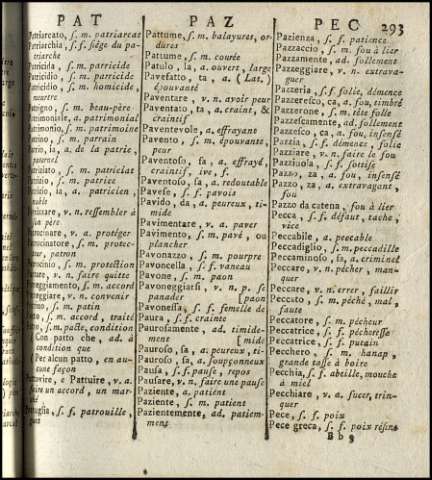 PAT PAZ PEC 293
Patriarcato, s. m. patriarcat
Patriarchia, s. f. siége du pa-
triarche
Patricida, s. m. patricide
Patricidio, s. m. patricide
homicide
Patrigno, s. m. beau-père
Patrimoniale, a. patrimonial
Patrimonio, s. m. patrimoine
Patrino, s. m. parrain
ia, a. de la patrie,
Patriziato, s. m. patriciat
Patrizio, s. m. patrice
ia, a. patricien,
noble
v. n. ressembler à
son père
Patrocinare, v. a. protéger
Patrocinatore, s. m. protec-
teur, patron
Patrocinio, s. m. protection
v. n. faire quitte
Patteggiamento, s. m. accord
Patteggiare, v. n. convenir
s. m. patin
s. m. accord, traité
s. m. pacte, condition
( Con patto che, ad à
condition que
( Per alcun patto, en au-
cune façon
Pattovire, e Pattuire, v. a.
faire un accord, un mar-
ché
Pattuglia, s. f. patrouille,
guet
Pattume, s. m. balayures, or-
dures
Pattume, s. m. courée
Patulo, la, a. ouvert, large
Pavefatto, ta, a. ( Lat. )
épouvanté
Paventare, v. n. avoir peur
Paventato, ta, a. craint, &
craintif
Paventevole, a. effrayant
Pavento, s. m. épouvante,
peur
Paventoso, sa, a. effrayé,
craintif, ive, f.
Paventoso, sa, a. redoutable
Pavese, s. f. pavois
Pavido, da, a. peureux, ti-
mide
Pavimentare, v. a. paver
Pavimento, s. m. pavé, ou
plancher
Pavonazzo, s. m. pourpre
Pavoncella, s. f. vaneau
Pavone, s. m. paon
Pavoneggiarsi, v. n. p. se
panader [ paon
Pavonessa, s. f. femelle de
Paura, s. f. crainte
Paurosamente, ad. timide-
ment [ mide
Pauroso, sa, a. peureux, ti-
Pauroso, sa, a. soupçonneux
Pausa, s. f. pause, repos
Pausare, v. n. faire une pause
Paziente, a. patient
Paziente, s. m. patient
Pazientemente, ad. patiem-
mens
Pazienza, s. f. patience
Pazzaccio, s. m. fou à lier
Pazzamente, ad. follement
Pazzeggiare, v. n. extrava-
guer
Pazzeria, s. f. folie, démence
Pazzeresco, ca, a. fou, timbré
Pazzerone, s. m. tête folle
Pazzescamente, ad. follement
Pazzesco, ca, a. fou, insensé
Pazzia, s. f. démence, folie
Pazziare, v. n. faire de fou
Pazziuola, s. f. sottise
Pazzo, za, a. fou, insensé
Pazzo, za, a. extravagant,
fou
Pazzo da catena, fou à lier
Pecca, s. f. défaut, tache,
vice
Peccabile, a. peccable
Peccadiglio, s. m. peccadille
Peccaminoso, sa, a. criminel
Peccare, v. n. pécher, man-
quer
Peccare, v. n. errer, faillir
Peccato, s. m. péché, mal,
faute
Peccatore, s. m. pécheur
Peccatrice, s. f. pécheresse
Peccatrice, s. f. putain
Pecchero, s. m. hanap,
grande tasse à boire
Pecchia, s. f. abeille, mouche
à miel
Pecchiare, v. a. sucer, trin-
quer
Pece, s. f. poix
Pece greca, s. f. poix résine
B b 3